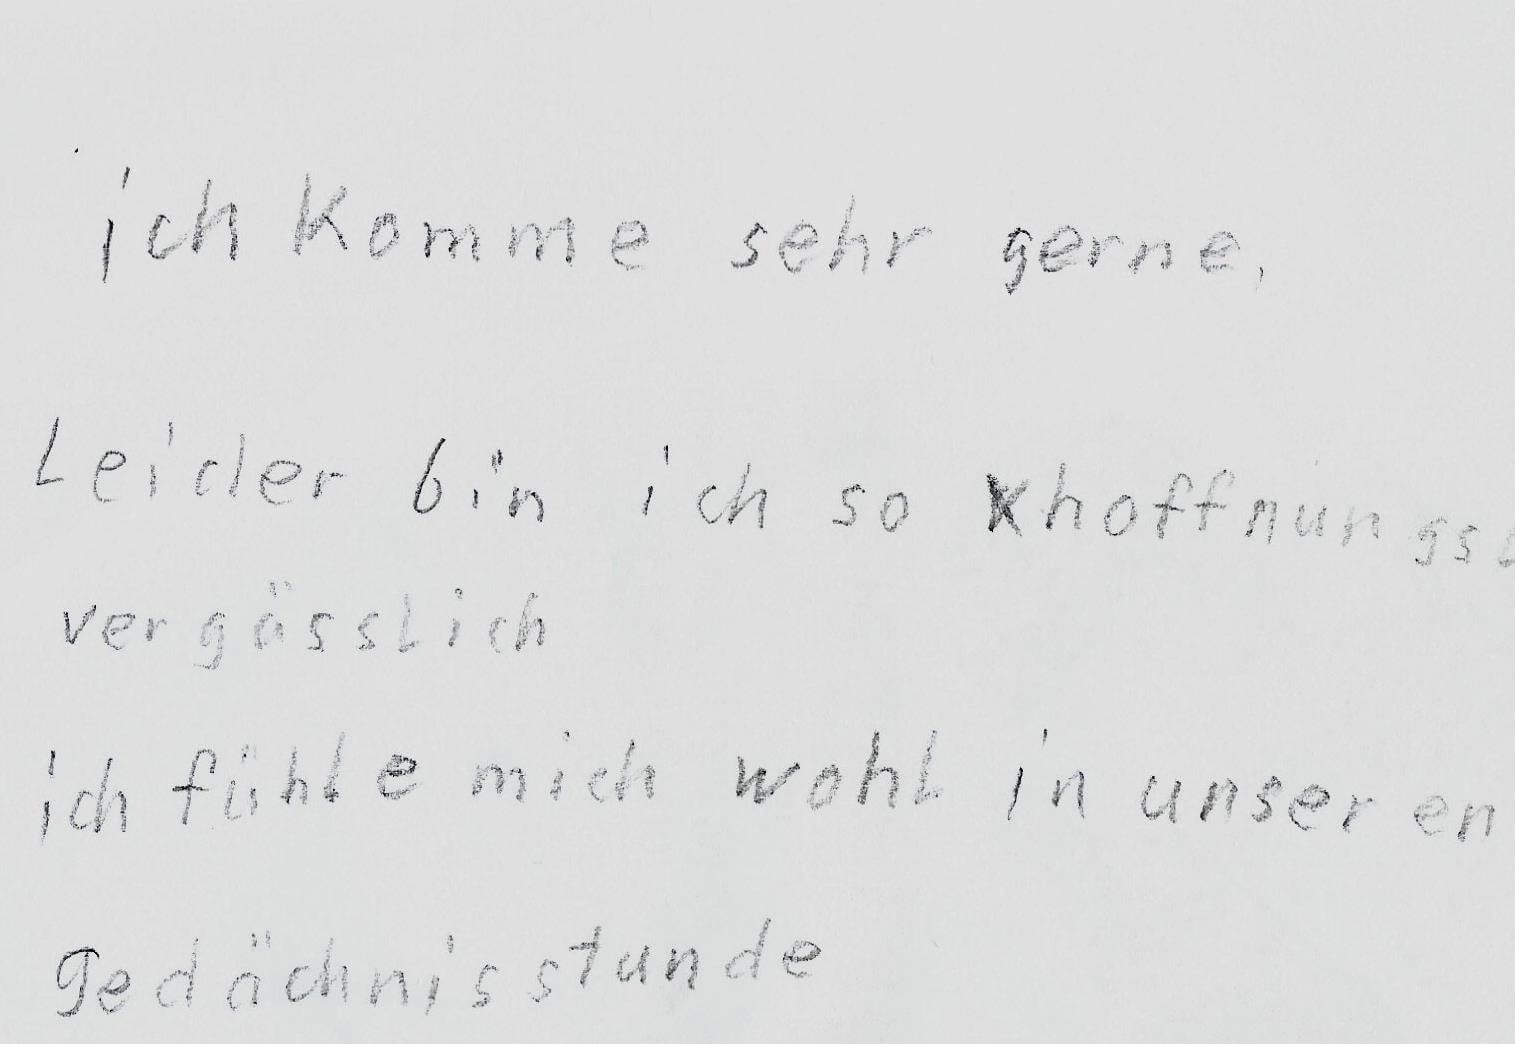 ich komme sehr gerne,
Leider bin ich so hoffnungs
vergässlich
ich fühle mich wohl in unseren
gedächnisstunde